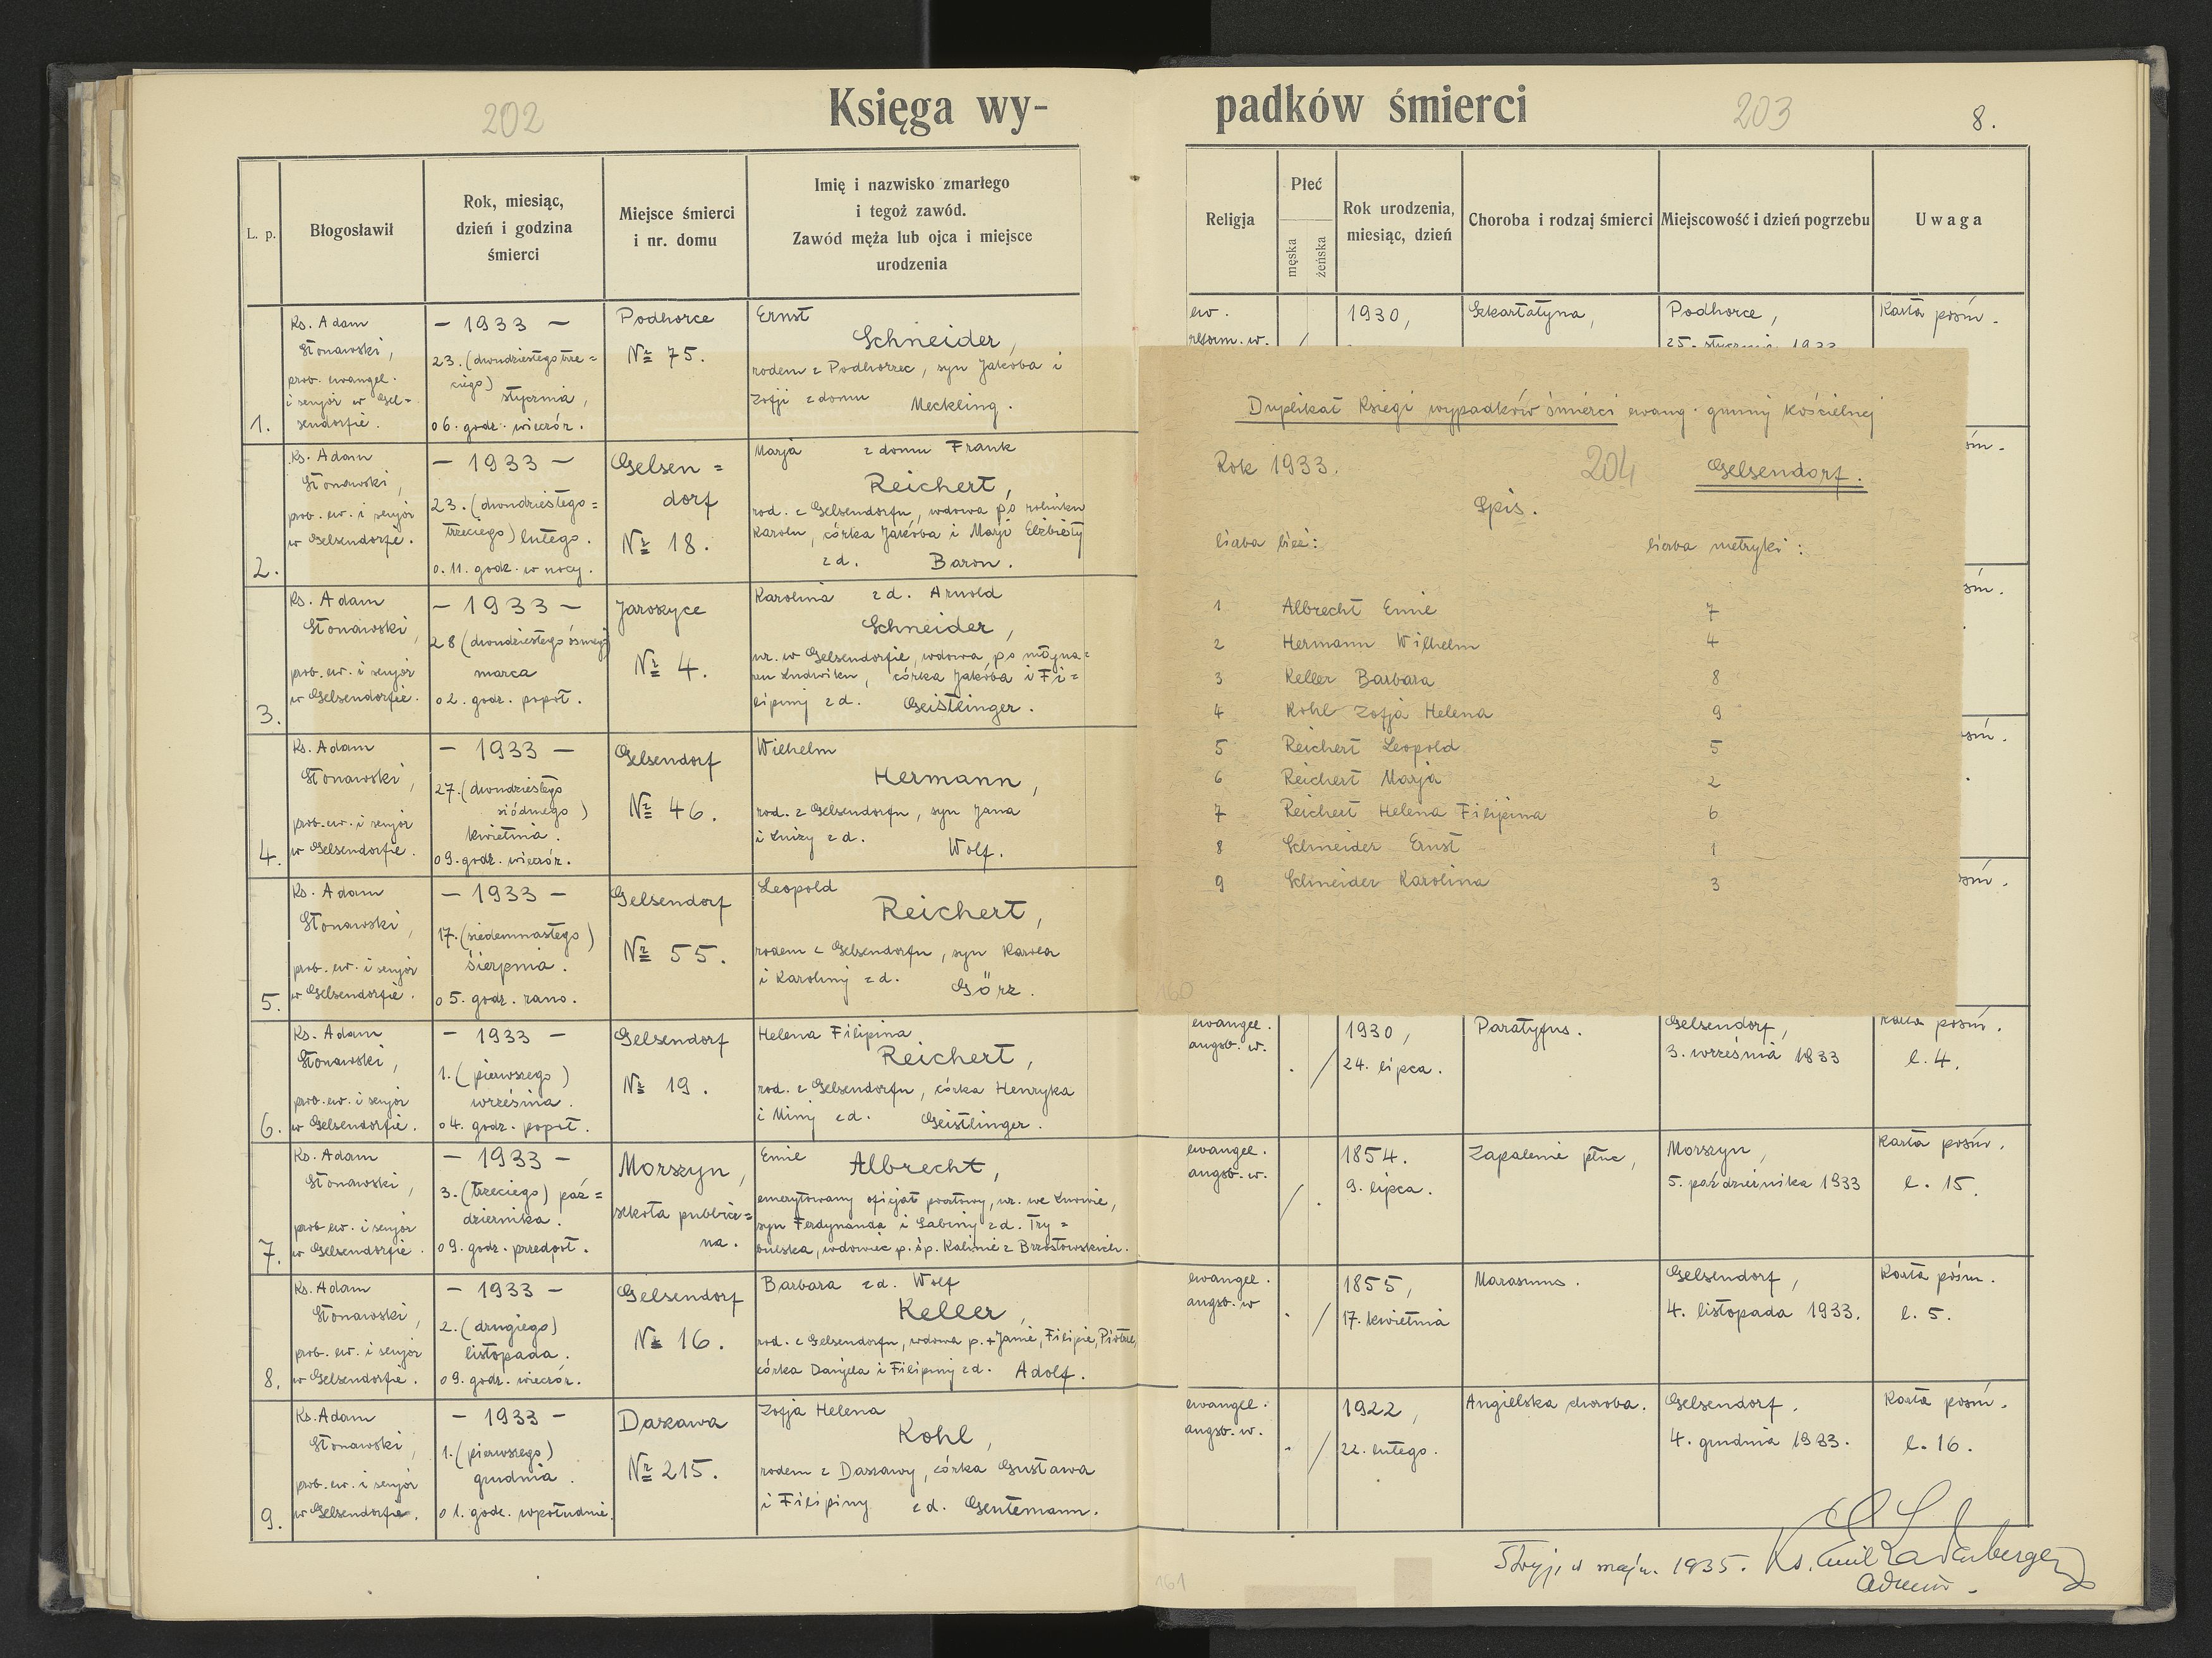 202
Księga wy-
padków śmierci
203
8.
L. p.
Błogosławił
Rok, miesiąc,
dzień i godzina
śmierci
Miejsce śmierci
i nr. domu
Imię i nazwisko zmarłego
i tegoż zawód.
Zawód męża lub ojca i miejsce
urodzenia
Religja
Płeć
męska
żeńska
Rok urodzenia,
miesiąc, dzień
Choroba i rodzaj śmierci
Miejscowość i dzień pogrzebu
Uwaga
1.
Ks. Adam
Stonawski,
prob. ewangel.
i senjor w Gel=
sendorfie.
- 1933 -
23. (dwudziestego trze=
ciego)
stycznia,
o 6. godz. wieczór.
Podhorce
Nr 75.
Ernst
Schneider,
rodem z Podhorzec, syn Jakóba i
Zofji z domu Meckling.
ew.
reform. w.
/
1930,
Szkarlatyna,
Podhorce,
25. stycznia 1933
Karta pośm.
2.
Ks. Adam
Stonawski,
prob. ew. i senjor
w Gelsendorfie.
- 1933 -
23. (dwudziestego=
trzeciego) lutego.
o. 11. godz. w nocy.
Gelsen=
dorf
Nr 18.
Marja z domu Frank
Reichert,
rod. z Gelsendorfu, wdowa po rolniku
Karolu, córka Jakóba i Marji Elżbiety
z d. Baron.
3.
Ks. Adam
Stonawski,
prob. ew. i senjor
w Gelsendorfie.
- 1933 -
28 (dwudziestego ósmego)
marca
o 2. godz. popoł.
Jaroszyce
Nr 4.
Karolina z d. Arnold
Schneider,
ur. w Gelsendorfie, wdowa po młyna=
rzu Ludwiku, córka Jakóba i Fi=
lipiny z d. Geistlinger.
4.
Ks. Adam
Stonawski,
prob. ew. i senjor
w Gelsendorfie.
- 1933 -
27. (dwudziestego
siódmego)
kwietnia.
o 9. godz. wieczór.
Gelsendorf
Nr 46.
Wilhelm
Hermann,
rod. z Gelsendorfu, syn Jana
i Luizy z d.
Wolf.
5.
Ks. Adam
Stonawski,
prob. ew. i senjor
w Gelsendorfie.
- 1933 -
17. (siedemnastego)
sierpnia.
o 5. godz. rano.
Gelsendorf
Nr 55.
Leopold
Reichert,
rodem z Gelsendorfu, syn Karola
i Karoliny z d.
Görz.
Duplikat Księgi wypadków śmierci ewang. gminy kościelnej
Rok 1933.
204
Gelsendorf.
Spis.
liczba bież:
liczba metryki:
1 Albrecht Emil 7
2 Hermann Wilhelm 4
3 Keller Barbara 8
4 Kohl Zofja Helena 9
5 Reichert Leopold 5
6 Reichert Marja 2
7 Reichert Helena Filipina 6
8 Schneider Ernst 1
9 Schneider Karolina 3
160
6.
Ks. Adam
Stonawski,
prob. ew. i senjor
w Gelsendorfie.
- 1933 -
1. (pierwszego)
września.
o 4. godz. popoł.
Gelsendorf
Nr 19.
Helena Filipina
Reichert,
rod. z Gelsendorfu, córka Henryka
i Miny z d. Geistlinger.
ewangel.
augsb. w.
. /
1930,
24. lipca.
Paratyfus.
Gelsendorf,
3. września 1833
Karta pośm.
l. 4.
7.
Ks. Adam
Stonawski,
prob. ew. i senjor
w Gelsendorfie.
- 1933 -
3. (trzeciego) paź=
dziernika.
o 9. godz. przedpoł.
Morszyn,
szkoła publicz=
na.
Emil Albrecht,
emerytowany oficjał pocztowy, ur. we Lwowie,
syn Ferdynanda i Sabiny z d. Try=
bulska, wdowiec p. śp. Kalinie z Brzostowskich.
ewangel.
augsb. w.
/ .
1854.
9. lipca.
Zapalenie płuc,
Morszyn,
5. października 1933
Karta pośm.
l. 15.
8.
Ks. Adam
Stonawski,
prob. ew. i senjor
w Gelsendorfie.
- 1933 -
2. (drugiego)
listopada.
o 9. godz. wieczór.
Gelsendorf
Nr 16.
Barbara z d. Wolf
Keller,
rod. z Gelsendorfu, wdowa p. + Janie, Filipie, Piotrze,
córka Danjela i Filipiny z d. Adolf.
ewangel.
augsb. w
. /
1855,
17. kwietnia
Marasmus.
Gelsendorf,
4. listopada 1933.
Karta pośm.
l. 5.
9.
Ks. Adam
Stonawski,
prob. ew. i senjor
w Gelsendorfie.
- 1933 -
1. (pierwszego)
grudnia.
o 1. godz. wpołudnie.
Daszawa
Nr 215.
Zofja Helena
Kohl,
rodem z Daszawy, córka Gustawa
i Filipiny z d. Gentemann.
ewangel.
augsb. w.
. /
1922,
22. lutego.
Angielska choroba.
Gelsendorf.
4. grudnia 1933.
Karta pośm.
l. 16.
Stryj, w maju. 1935. Ks. Emil Ladenberger
admin.
161